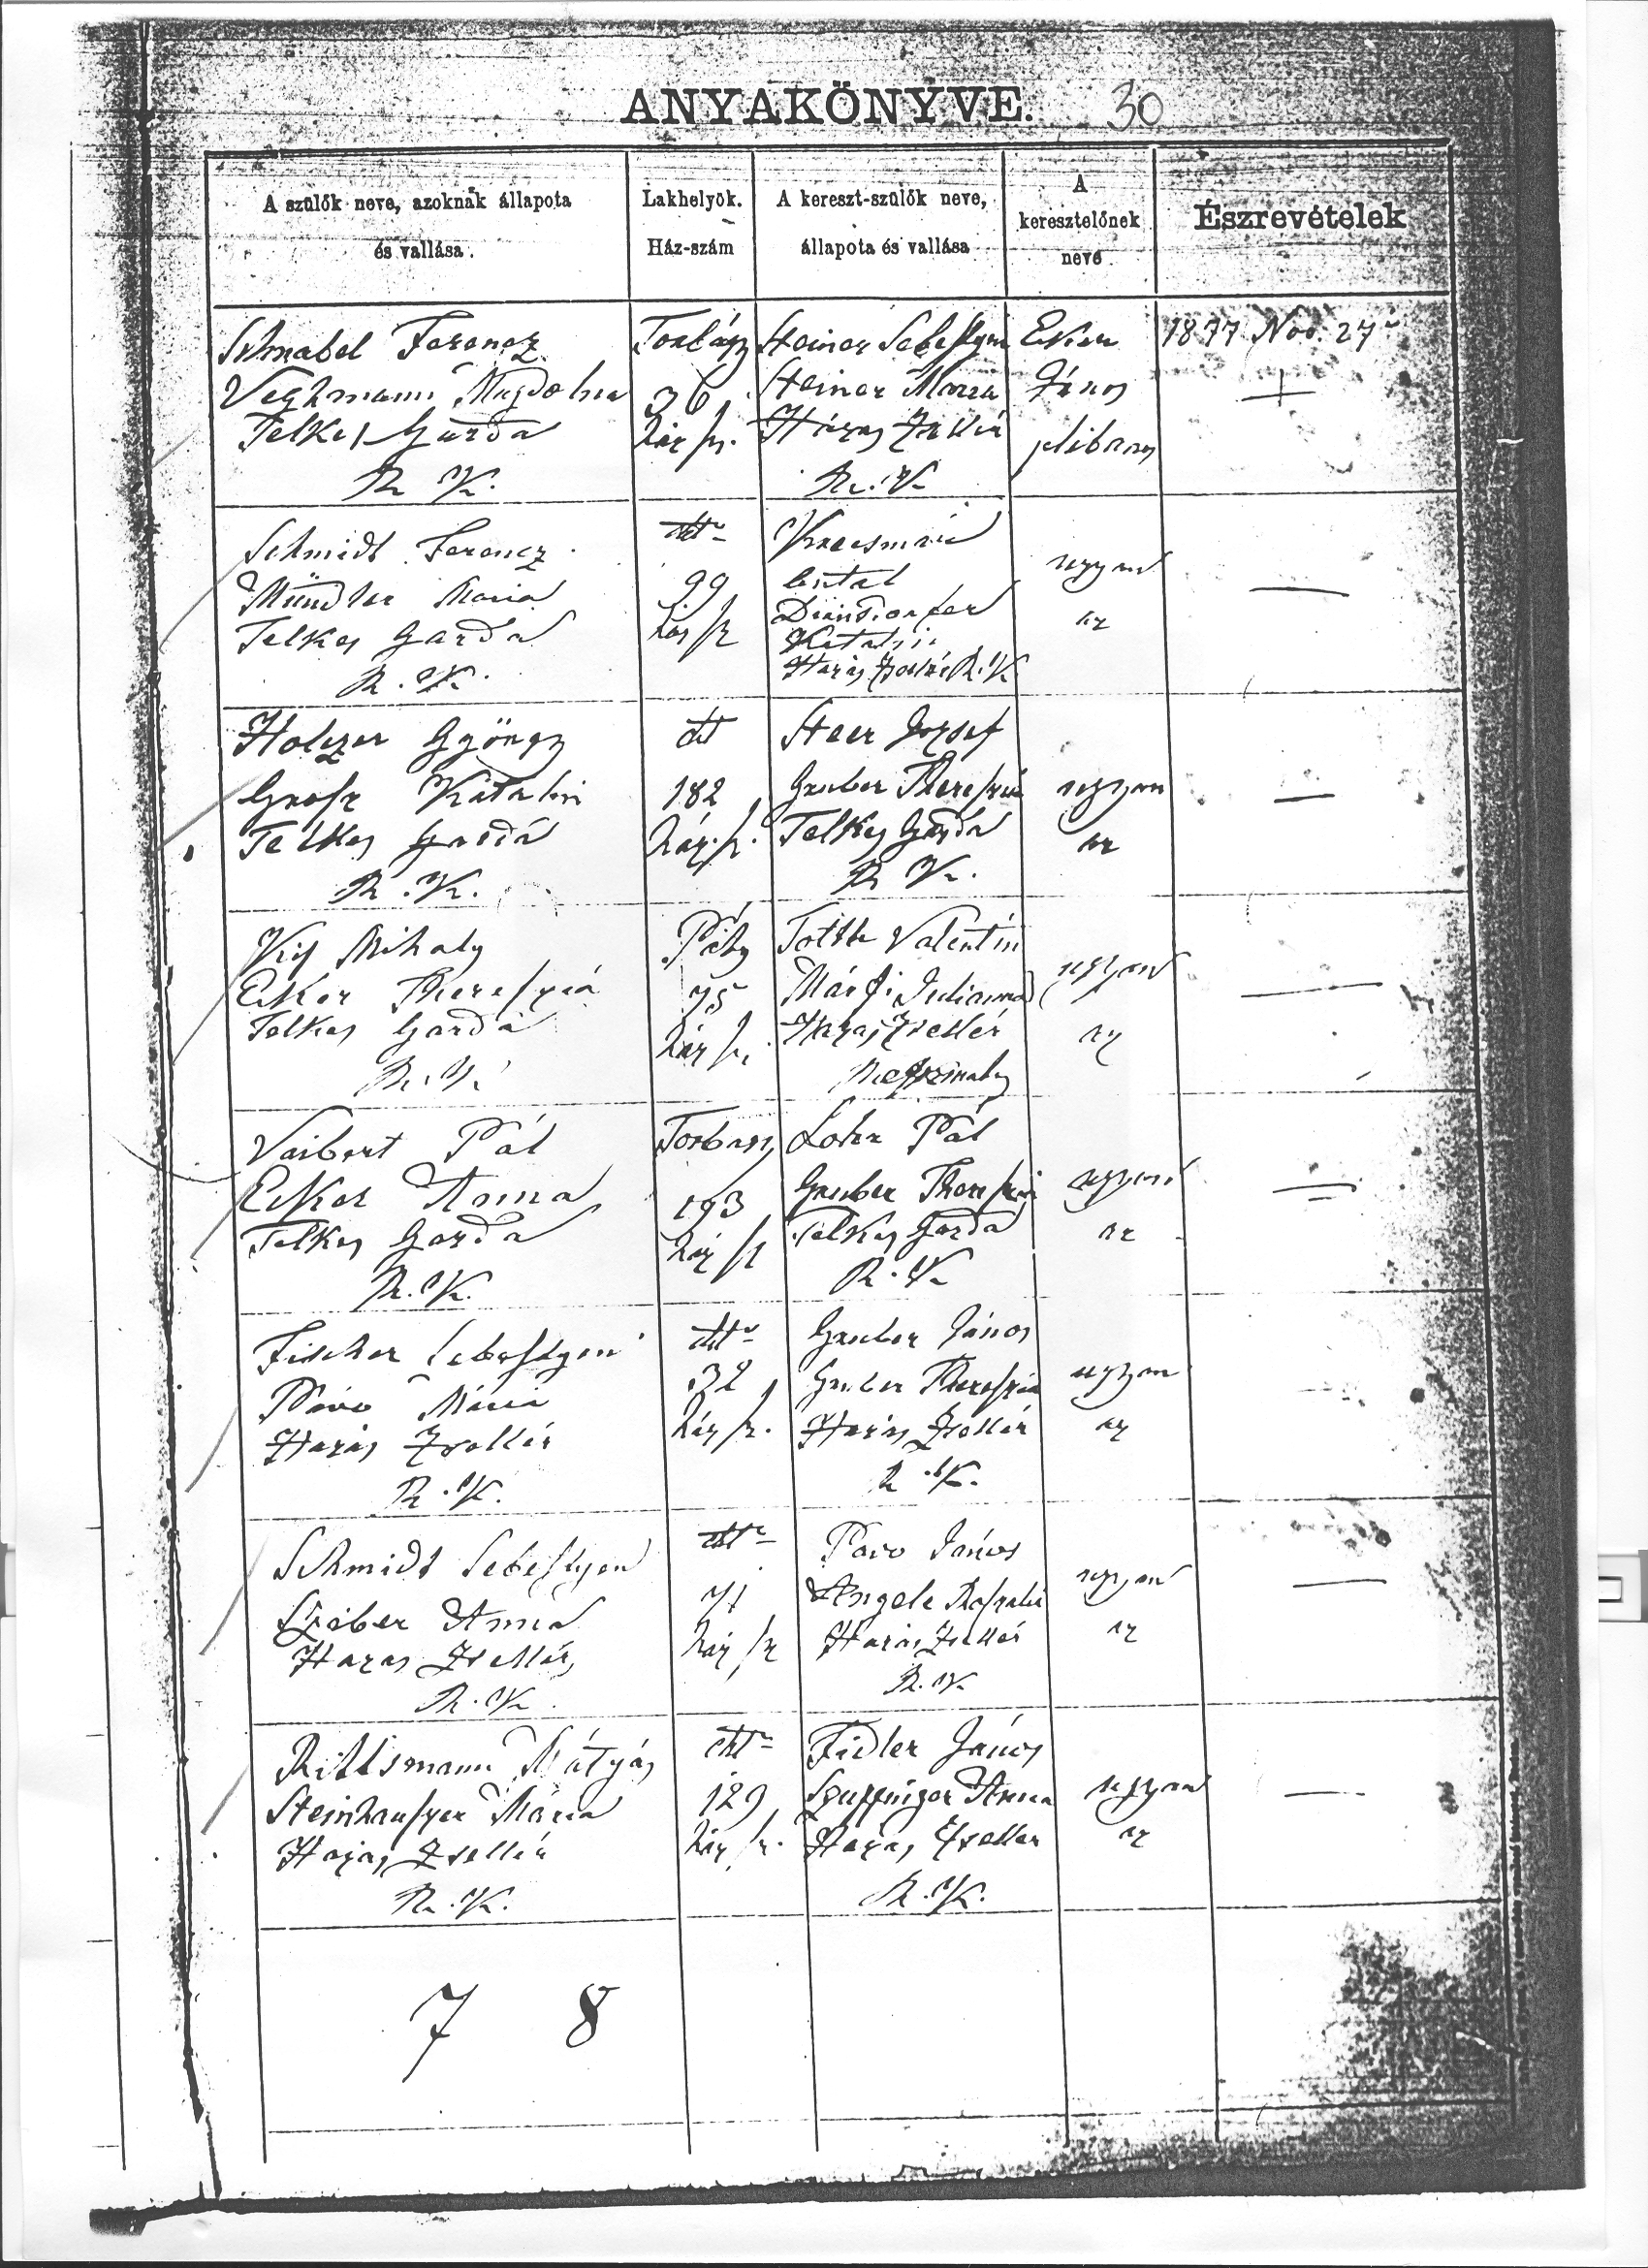 ANYAKÖNYVE. 30
A szülők neve, azoknak állapota
és vallása.
Lakhelyök.
Ház-szám
A kereszt-szülők neve,
állapota és vallása
A
keresztelőnek
neve
Észrevételek
Schnabel Ferencz
Telkes Garda
R. K.
Torbágy
36
ház sz.
Steiner Sebestyen
Steiner Maria
Házas Zsellér
R. K.
János
plebanos
1877 Nov. 27
+
Schmidt Ferencz
Mündler Maria
Telkes Garda
R. K.
dtt
99
ház sz
Katalin
Házas Zsellér R. K.
ugyan
az
—
Holczer György
Grosz Katalin
Telkes Garda
R. K.
dtt
182
ház. sz.
Steer Jozsef
Gruber Thereszia
Telkes Garda
R K.
ugyan
az
—
Kis Mihaly
Ecker Thereszia
Telkes Garda
R. K.
Páty
75
ház sz.
Totth Valentin
Márfi Julianna
Házas Zsellér
ugyan
az
—
Vaibert Pál
Ecker Anna
Telkes Garda
R. K.
Torbagy
193
ház sz
Pál
Gruber Thereszia
Telkes Garda
R. K
ugyan
az
—
Fischer Sebestyen
Pávo Mária
Házas Zsellér
R. K.
dtt
32
ház sz.
Gruber János
Gruber Thereszia
Házas Zsellér
R. K.
ugyan
az
Schmidt Sebestyen
Anna
Hazas Zsellér
R. K.
dtt
71
ház sz
Pavo János
Angele Rozalia
Házas Zsellér
R. K.
ugyan
az
—
Rittsmann Mátyás
Steinhauszer Mária
Hazas Zsellér
R. K.
dtt
129
ház sz.
Fidler János
Anna
Hazas Zseller
R. K.
ugyan
az
—
7 8